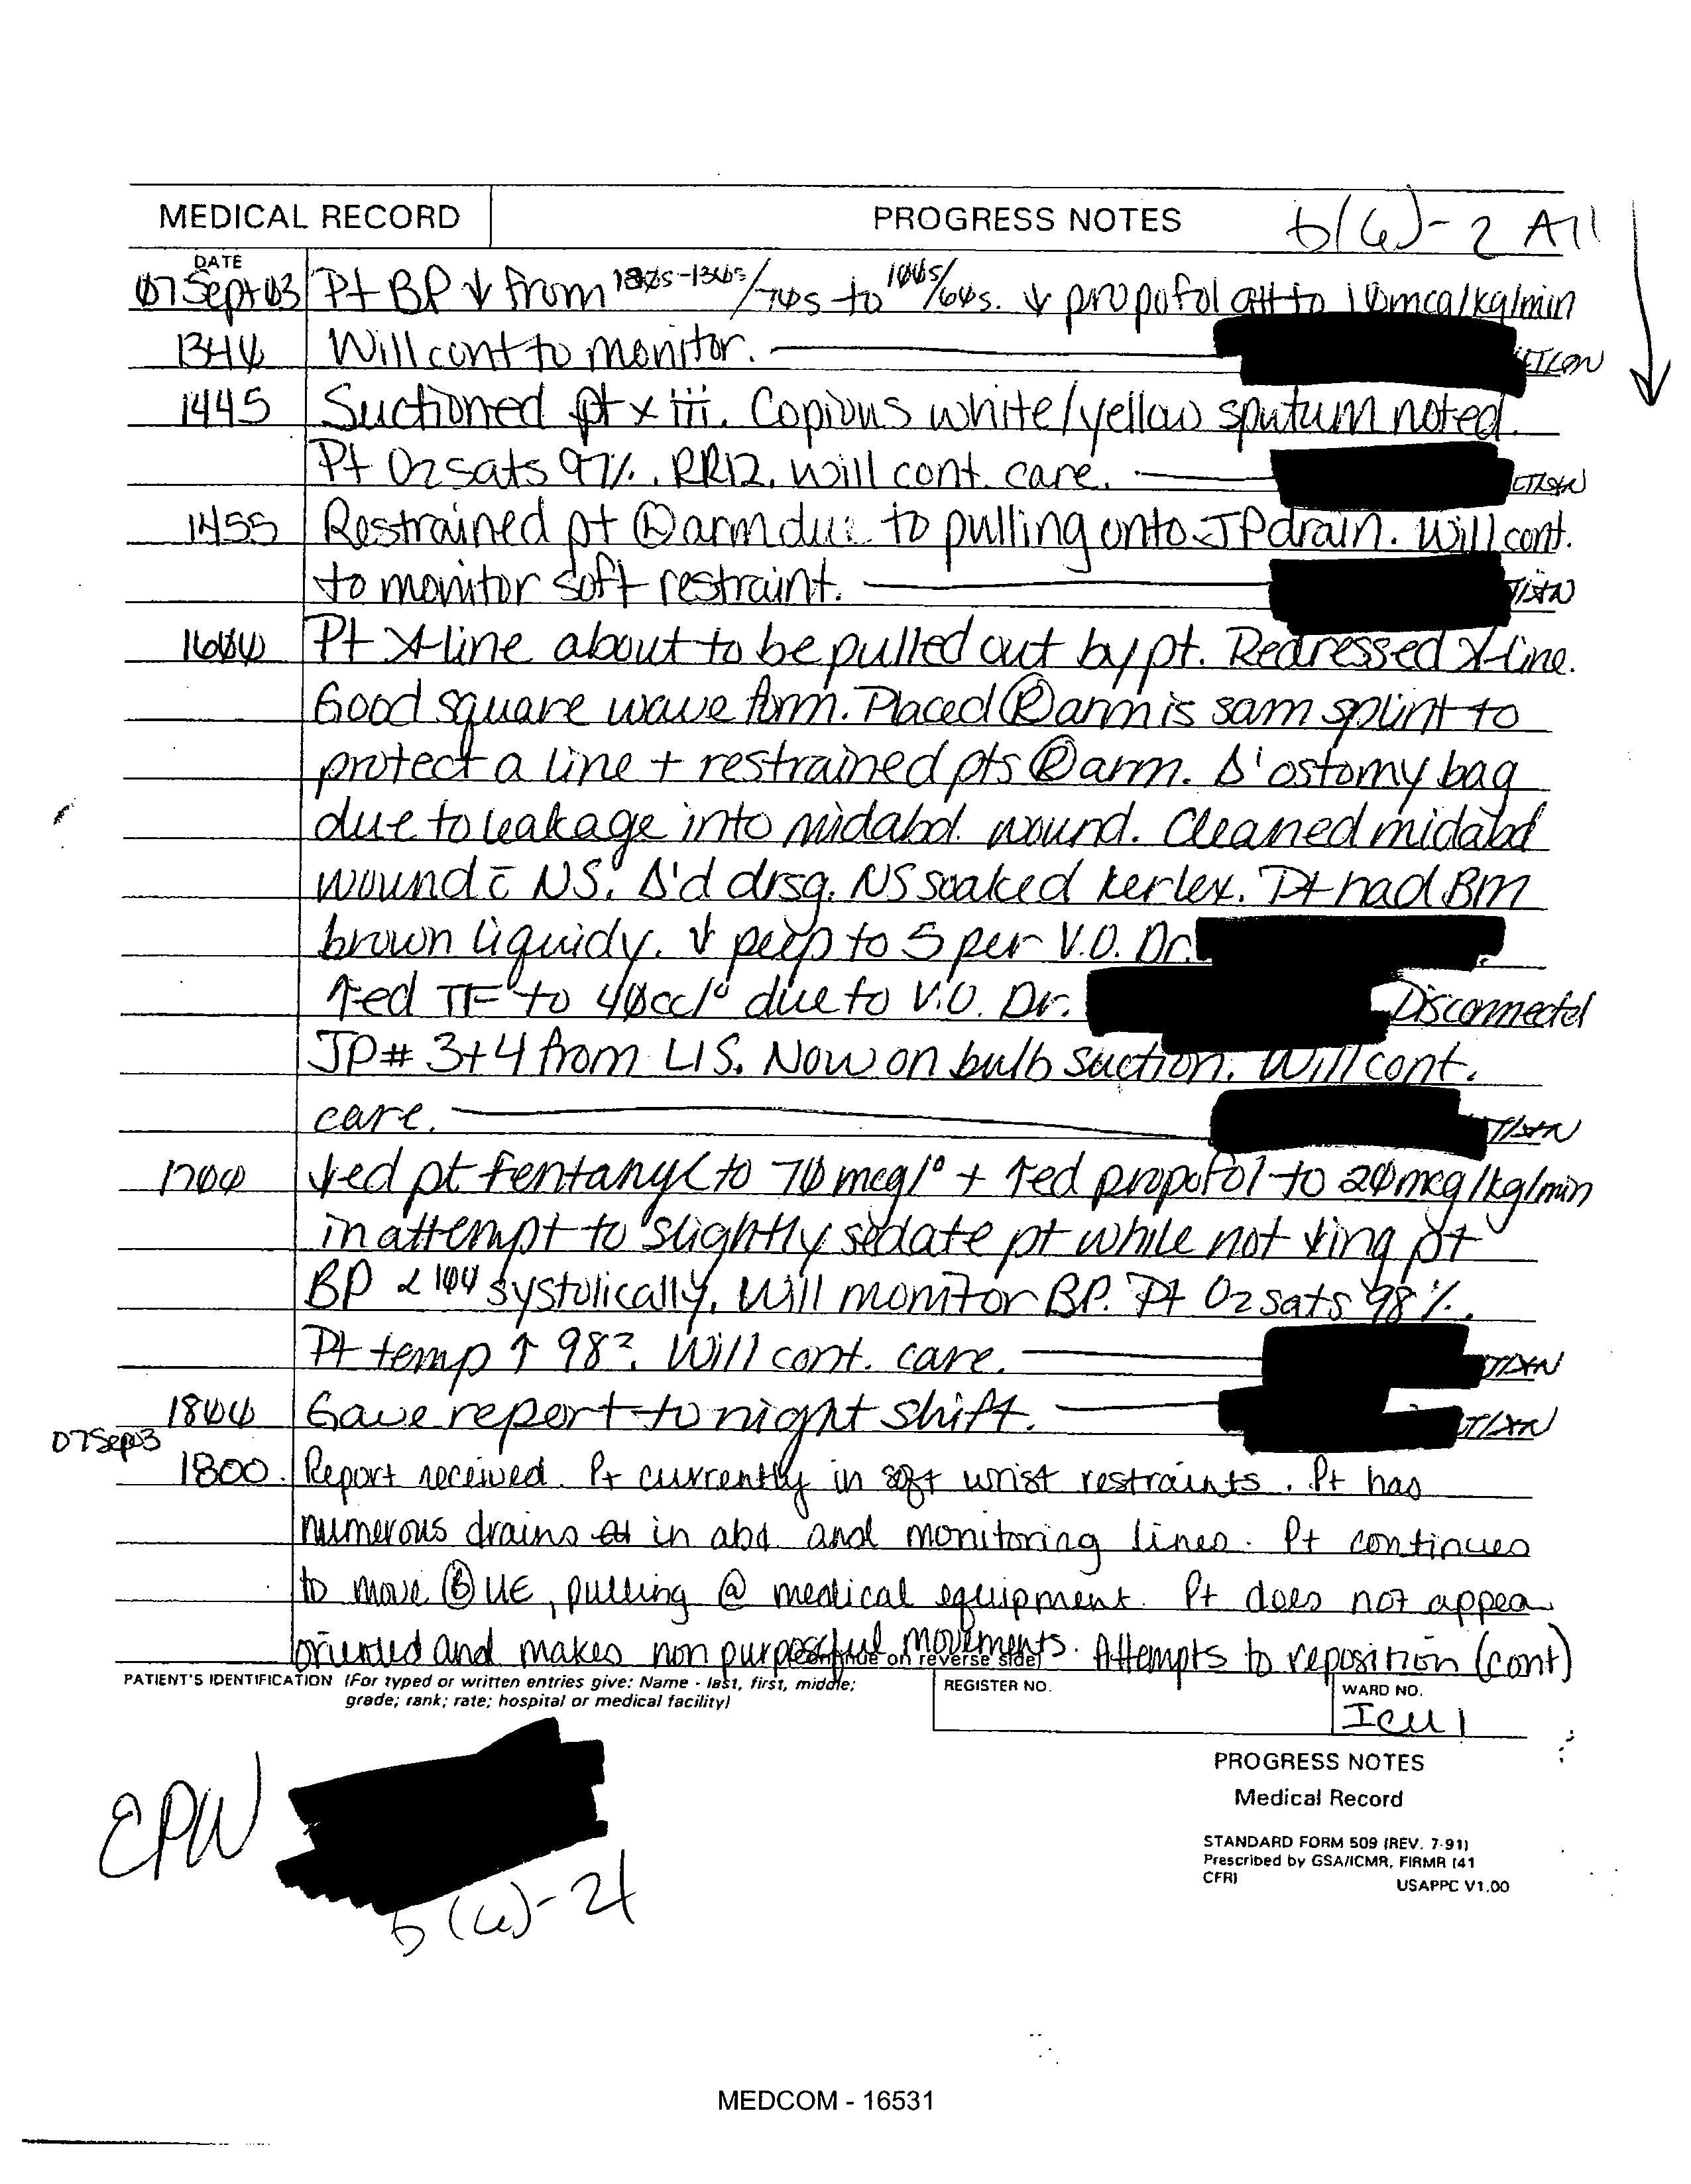 MEDICAL RECORD PROGRESS NOTES b(6)-2 All
DATE
07Sept03 Pt BP ↓ from 120s-130s/70s to 100s/60s. ↓ propofol gtt to 10mcg/kg/min
1340 Will cont to monitor.
1445 Suctioned pt x iii. Copious white/yellow sputum noted.
Pt O2 sats 97%. RR12. Will cont. care.
1455 Restrained pt arm due to pulling onto JP drain. Will cont.
to monitor soft restraint.
1600 Pt A-line about to be pulled out by pt. Redressed A-line.
Good square wave form. Placed Ⓡ arm is sam splint to
protect a line + restrained pts Ⓡ arm. Δ' ostomy bag
due to leakage into midabd. wound. Cleaned midabd
wound c̄ NS. Δ'd drsg. NS soaked kerlex. Pt had BM
brown liquidy. ↓ peep to 5 per V.O. Dr.
↑ed TF to 40cc/° due to V.O. Dr. Disconnected
JP# 3+4 from LIS. Now on bulb suction. Will cont.
care.
1700 ↓ed pt Fentanyl to 70 mcg/° + ↑ed propofol to 20mcg/kg/min
in attempt to slightly sedate pt while not ↓ing pt
BP < 100 systolically. Will monitor BP. Pt O2 sats 98%.
Pt temp ↑ 98². Will cont. care.
1800 Gave report to night shift.
07Sep03
1800. Report received. Pt currently in soft wrist restraints. Pt has
numerous drains in abd and monitoring lines. Pt continues
to move Ⓑ UE, pulling @ medical equipment. Pt does not appea
oriented and makes non purposeful movements. Attempts to reposition (cont)
(Continue on reverse side)
PATIENT'S IDENTIFICATION (For typed or written entries give: Name - last, first, middle;
grade; rank; rate; hospital or medical facility)
REGISTER NO.
WARD NO.
ICU 1
EPW
b(6)-4
PROGRESS NOTES
Medical Record
STANDARD FORM 509 (REV. 7-91)
Prescribed by GSA/ICMR, FIRMR (41
CFR)
USAPPC V1.00
MEDCOM - 16531